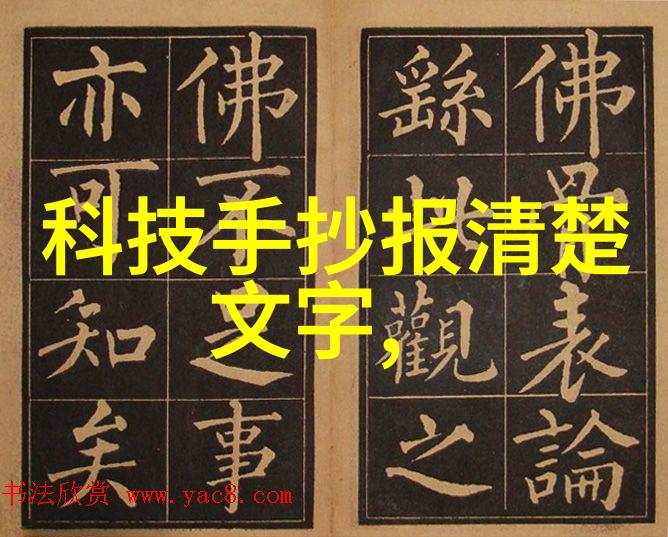 佛表論
繇此觀之
佛之事
亦可知矣
科技手抄报清楚
文字,
书法欣赏 www.yac8.com